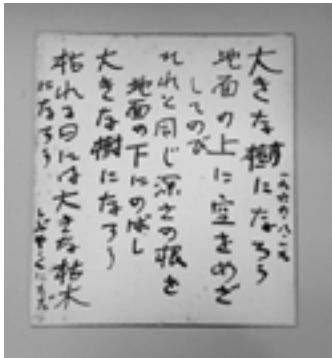 大きな樹になろう
地面の上に空をめざ
してのび
それと同じ深さの根を
地面の下にのばし
大きな樹になろう
枯れる日には大きな枯木
になろう